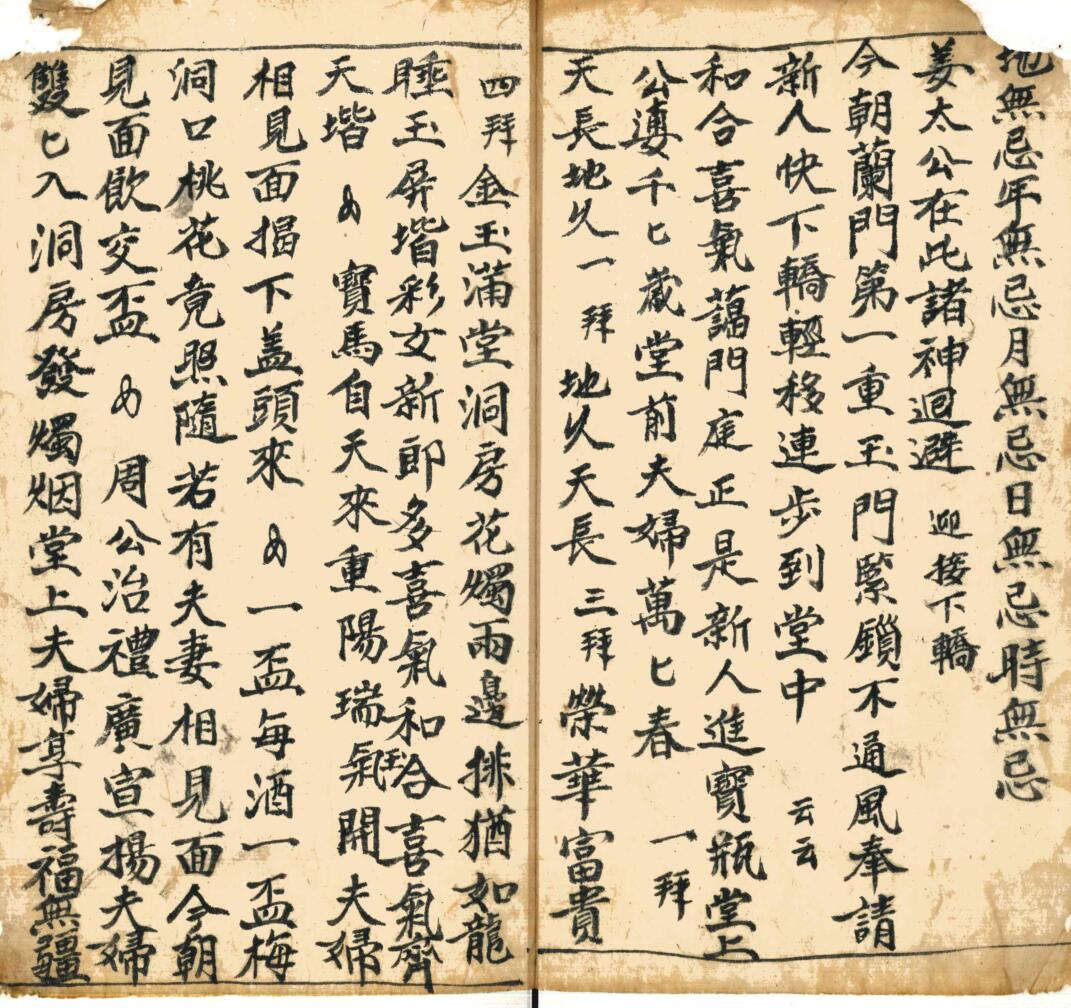 地無忌年無忌月無忌日無忌時無忌
姜太公在此諸神迴避 迎接下轎
今朝蘭門第一重玉門緊鎖不通風奉請
新人快下轎輕移連步到堂中 云云
和合喜氣藹門庭正是新人進寶瓶堂上
公婆千匕歲堂前夫婦萬匕春 一拜
天長地久一 拜 地久天長 三拜 榮華富貴
四拜 金玉滿堂洞房花燭兩邊排猶如龍
睡玉屏堦彩女新郎多喜氣和合喜氣齊
天堦 寶馬自天來重陽瑞氣開夫婦
相見面揭下盖頭來 一盃每酒一盃梅
洞口桃花竟照隨若有夫妻相見面今朝
見面飲交盃 周公治禮廣宣揚夫婦
雙匕入洞房發燭烟堂上夫婦享壽福無疆